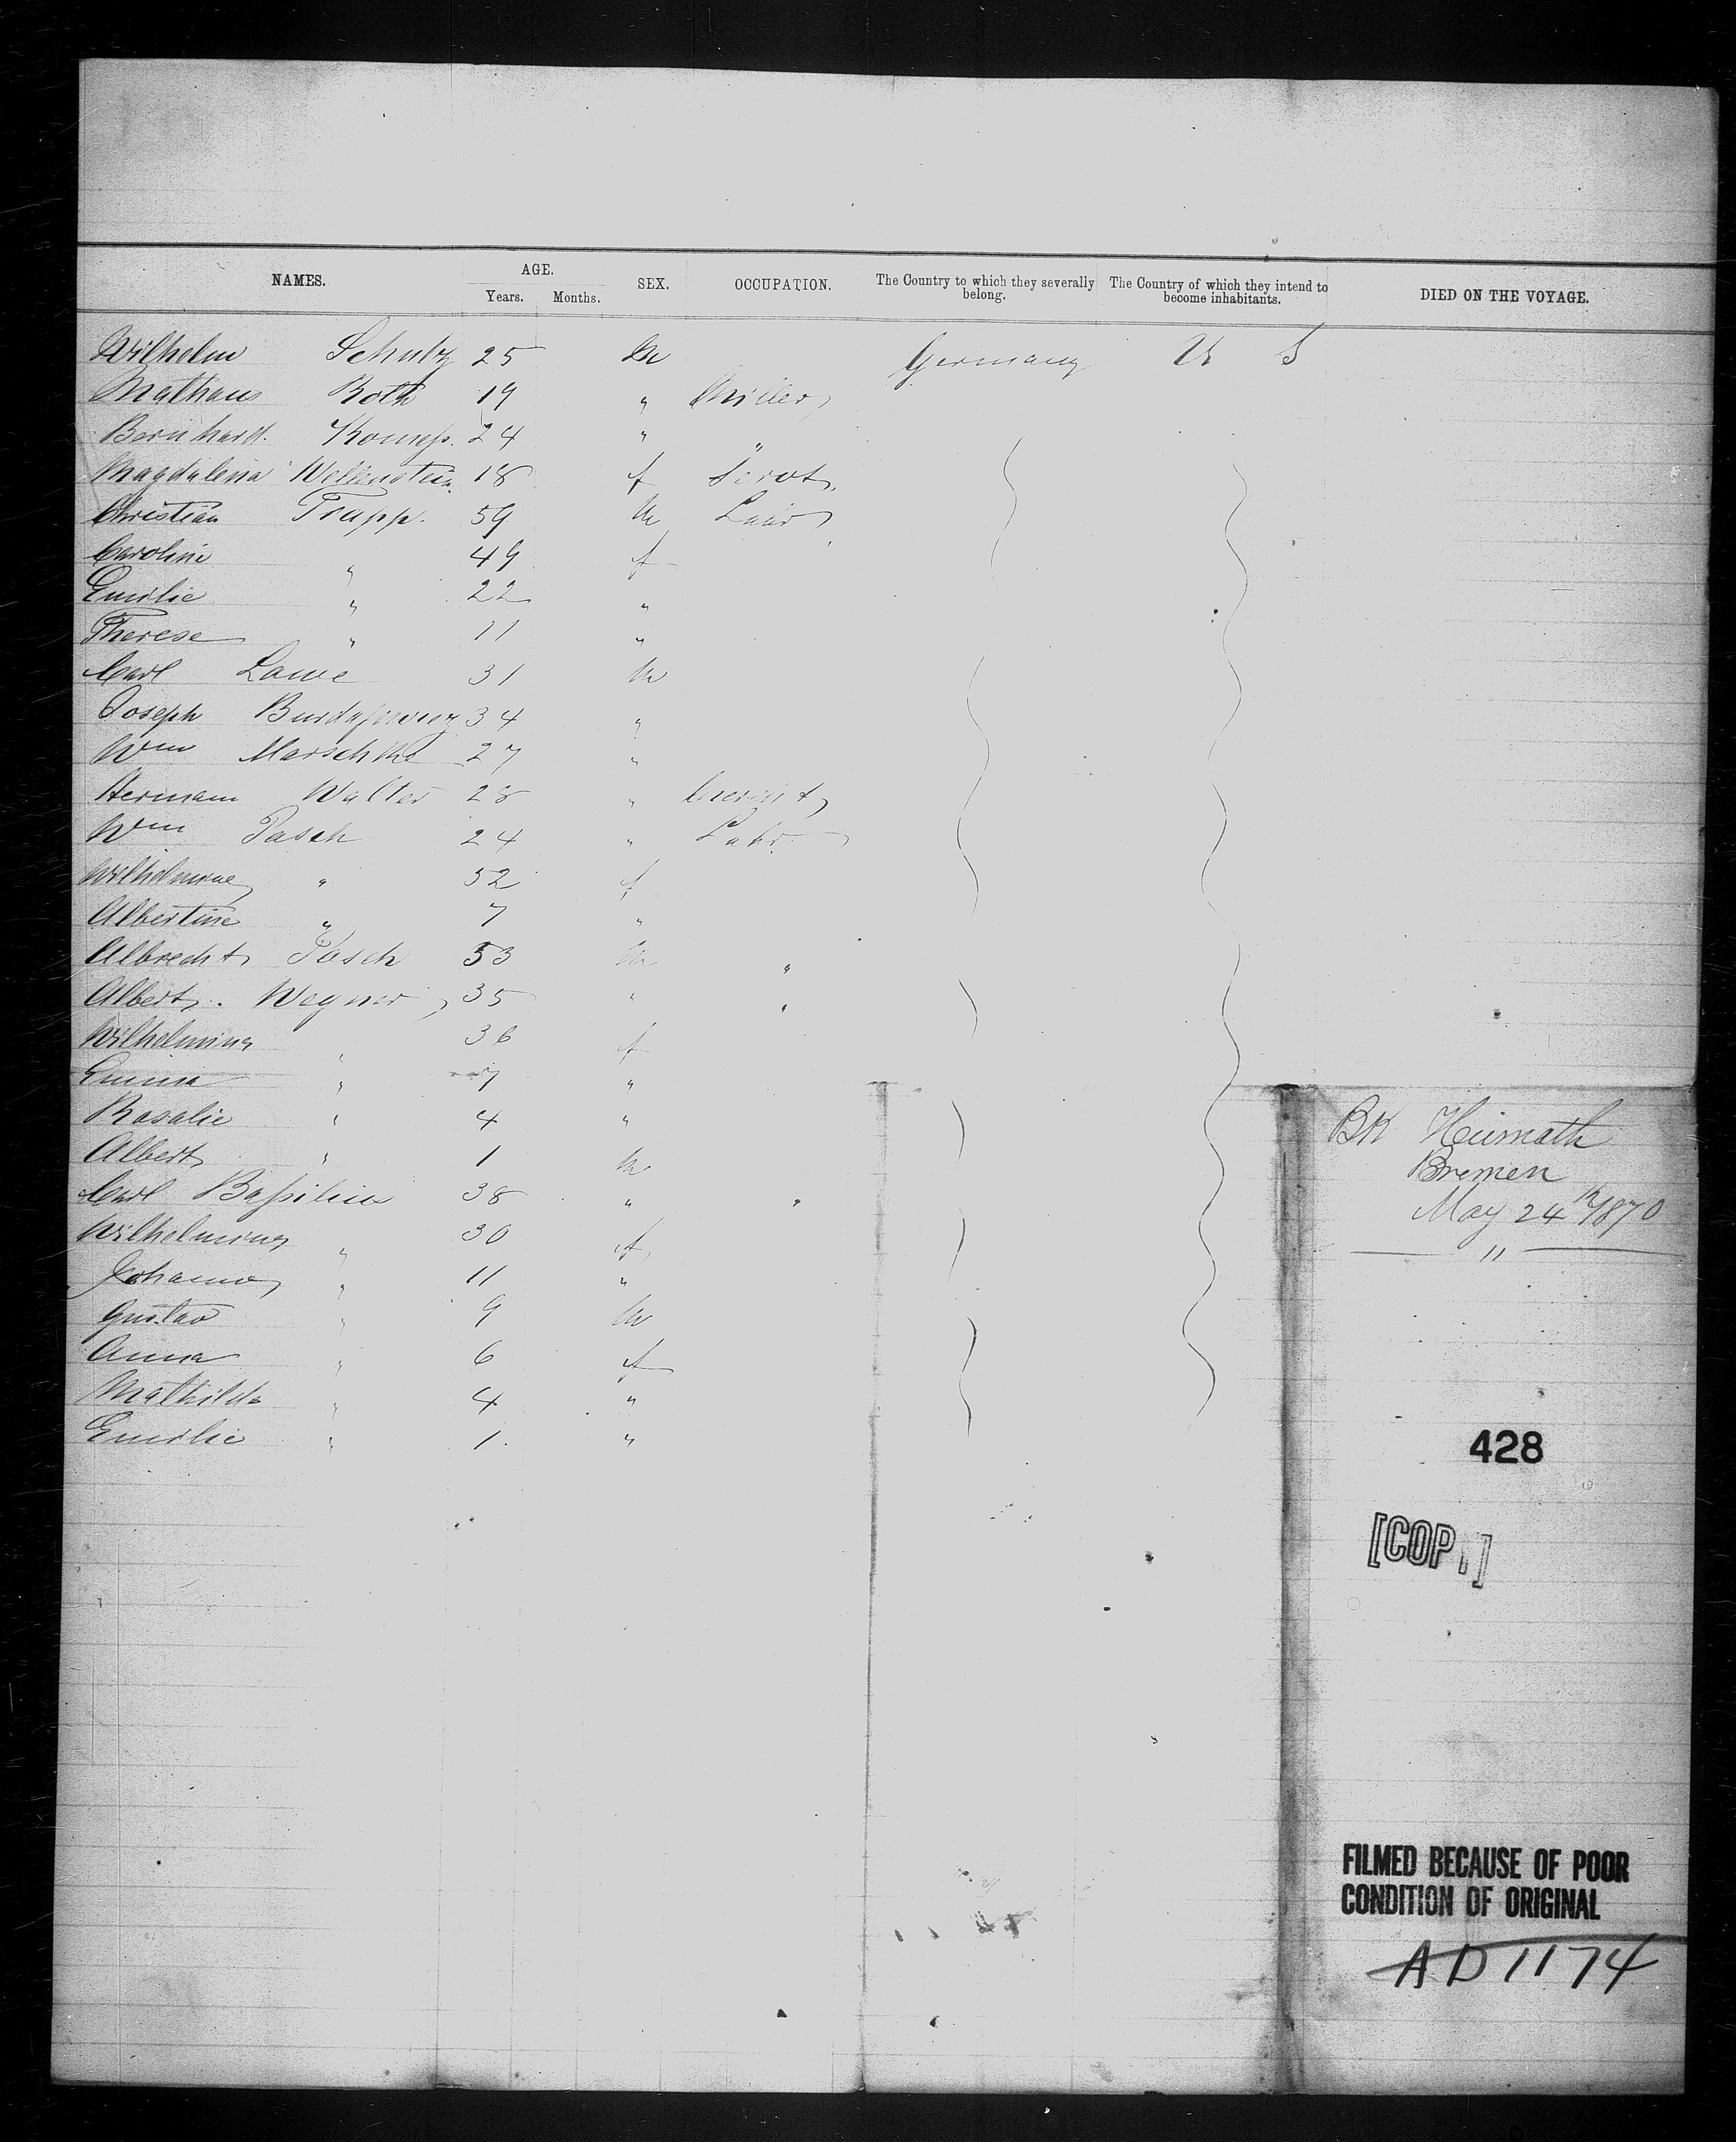 NAMES. AGE. Years. Months. SEX. OCCUPATION. The Country to which they severally belong. The Country of which they intend to become inhabitants. DIED ON THE VOYAGE.
Wilhelm Schulz 25 M Germany U S
Mathaus Roth 19 " Miller
Bernhard. 24 " "
Magdalena Wellenstein 18 f Servt.
Christian Trapp. 59 M Labr
Caroline " 49 f
Emilie " 22 "
Therese " 11 "
Carl 31 M
Joseph 34 "
Wm Marschke 27 "
Hermann Walter 28 "
Wm Pasch 24 " Labr
Wilhelmine " 52 f
Albertine " 7 "
Albrecht Pasch 53 M "
Albert. Wegner 35 " "
Wilhelmina " 36 f
Emma " 7 "
Rosalie " 4 "
Albert " 1 M
Carl 38 " "
Wilhelmina " 30 f
Johanna " 11 "
Gustav " 9 M
Anna " 6 f
Mathilde " 4 "
Emilie " 1. "
BK Heimath
Bremen
May 24th 1870
"
428
[COPY]
FILMED BECAUSE OF POOR
CONDITION OF ORIGINAL
AD 1174